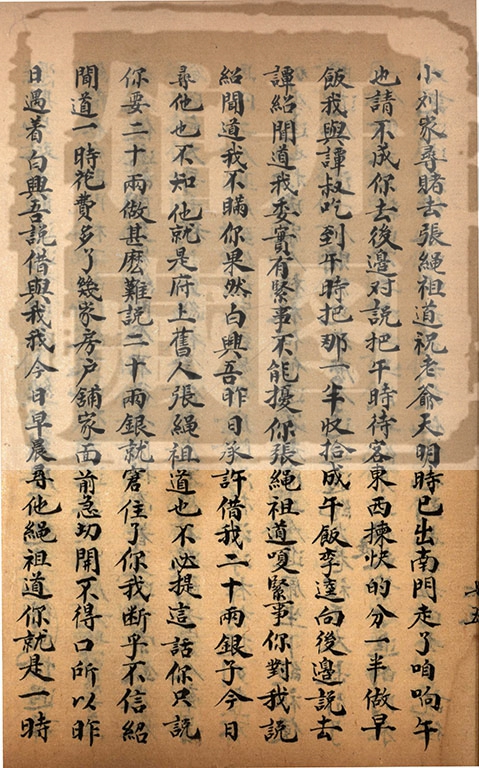 小刘家尋賭去張繩祖道祝老爺天明時已出南門走了咱响午
也請不成你去後邊对説把午時待客東西揀快的分一半做早
飯我與譚叔吃到午時把那一半收拾成午飯李逵向後邊説去
譚紹聞道我委實有緊事不能擾你張繩祖道嗄緊事你對我説
紹聞道我不瞞你果然白興吾昨日承許借我二十兩銀子今日
尋他也不知他就是府上舊人張繩祖道也不必提這話你只説
你要二十兩做甚麽難説二十兩銀就窘住了你我断乎不信紹
聞道一時花費多了幾家房戶舖家面前急切開不得口所以昨
日遇着白興吾説借與我我今日早晨尋他繩祖道你就是一時